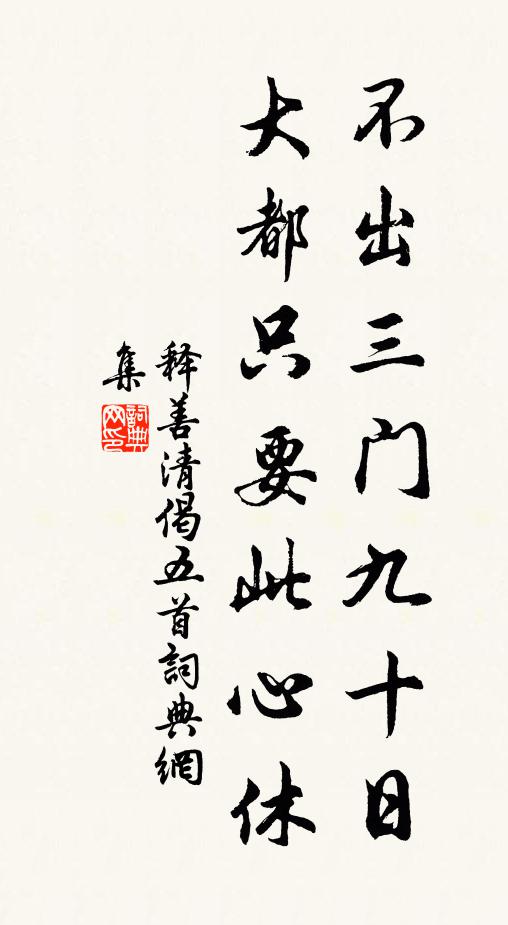 不出三门九十日
大都只要此心休
释善清偈五首詞典網
集
詞典
网印